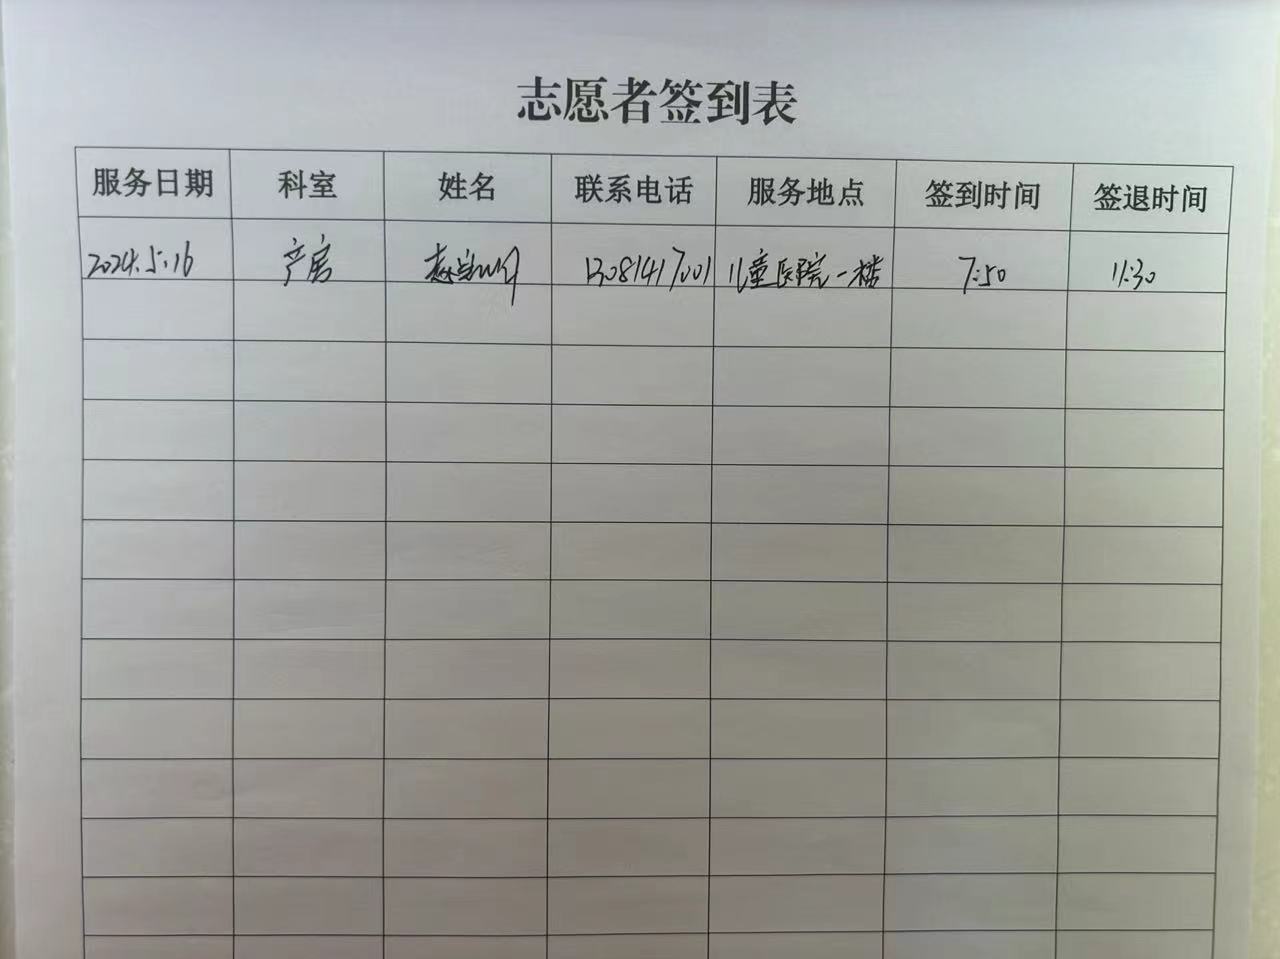 志愿者签到表
服务日期 科室 姓名 联系电话 服务地点 签到时间 签退时间
2024.5.16 产房 13081417001 儿童医院一楼 7:50 11:30